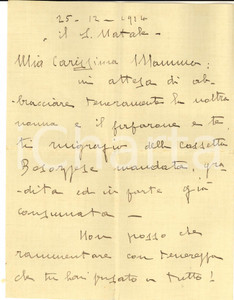 25-12-1914
il S. Natale -
Mia Carissima Mamma;
in attesa di ab-
bracciare teneramente la nostra
nonna e il furfarone e te
ti ringrazio della cassetta
mandata, gra-
dita ed in parte già
consumata -
Non posso che
rammentare con tenerezza
che tu hai pensato a tutto!